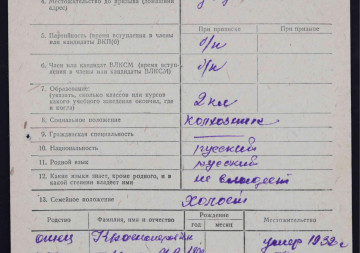 4. Местожительство до призыва (домашний
адрес)
При приписке
При призыве
5. Партийность (время вступления в члены
или кандидаты ВКП(б)
б/п
6. Член или кандидат ВЛКСМ (время всту-
пления в члены или кандидаты ВЛКСМ)
б/п
7. Образование:
(указать, сколько классов или курсов
какого учебного заведения окончил, где
и когда)
2 кл
8. Социальное положение
колхозник
9. Гражданская специальность
10. Национальность
русский
11. Родной язык
русский
12. Какие языки знает, кроме родного, и в
какой степени владеет ими
не владеет
13. Семейное положение
холост
Родство
Фамилия, имя и отчество
Рождения
год
месяц
Местожительство
отец
умер 1932 г.